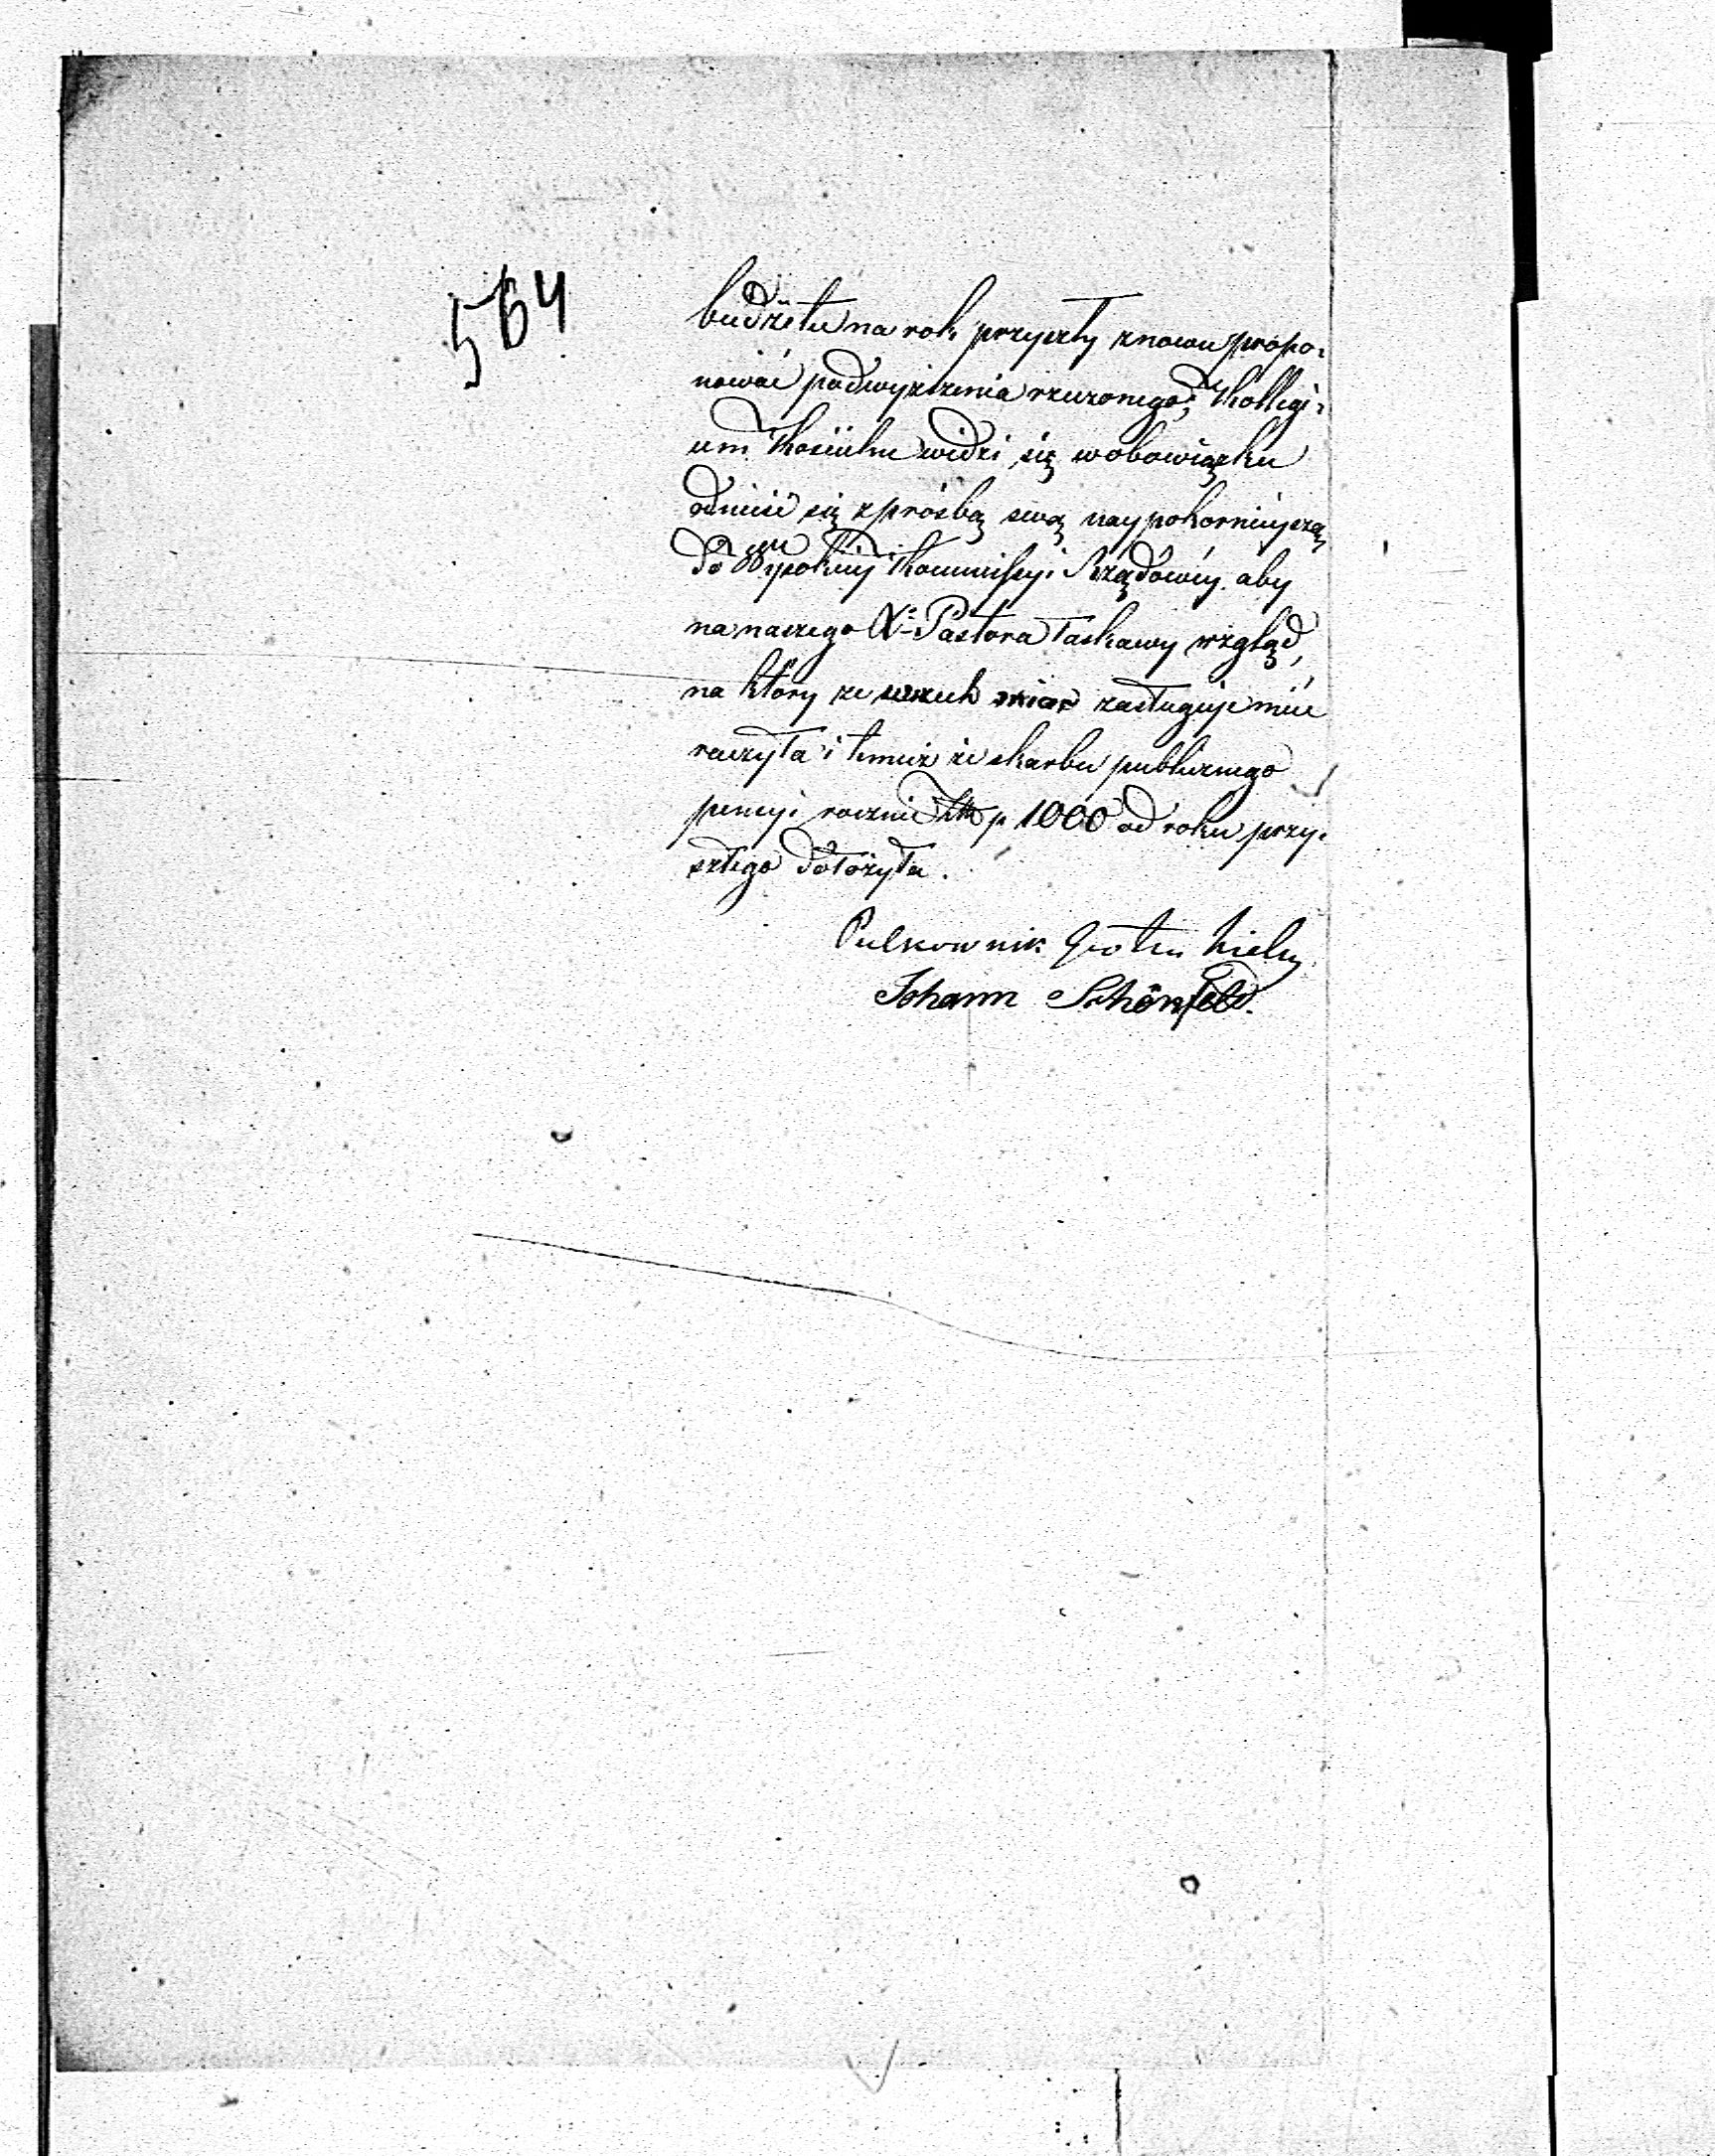 564
budżetu na rok przyszły znowu propo-
nować podwyższenia rzeczonego; Kollegi-
um Kościelne widzi się wobowiązku
odnieść się z prośbą swą naypokornieyszą
do Wysokiey Kommissyi Rządowey aby
na naszego X. Pastora łaskawy wzgląd,
na który ze wszech miar zasługuje mieć
raczyła i temuż ze skarbu publicznego
pensyi rocznie Złp 1000 od roku przy-
szłego dołożyła.
Pulkownik
Johann Schönfeld.